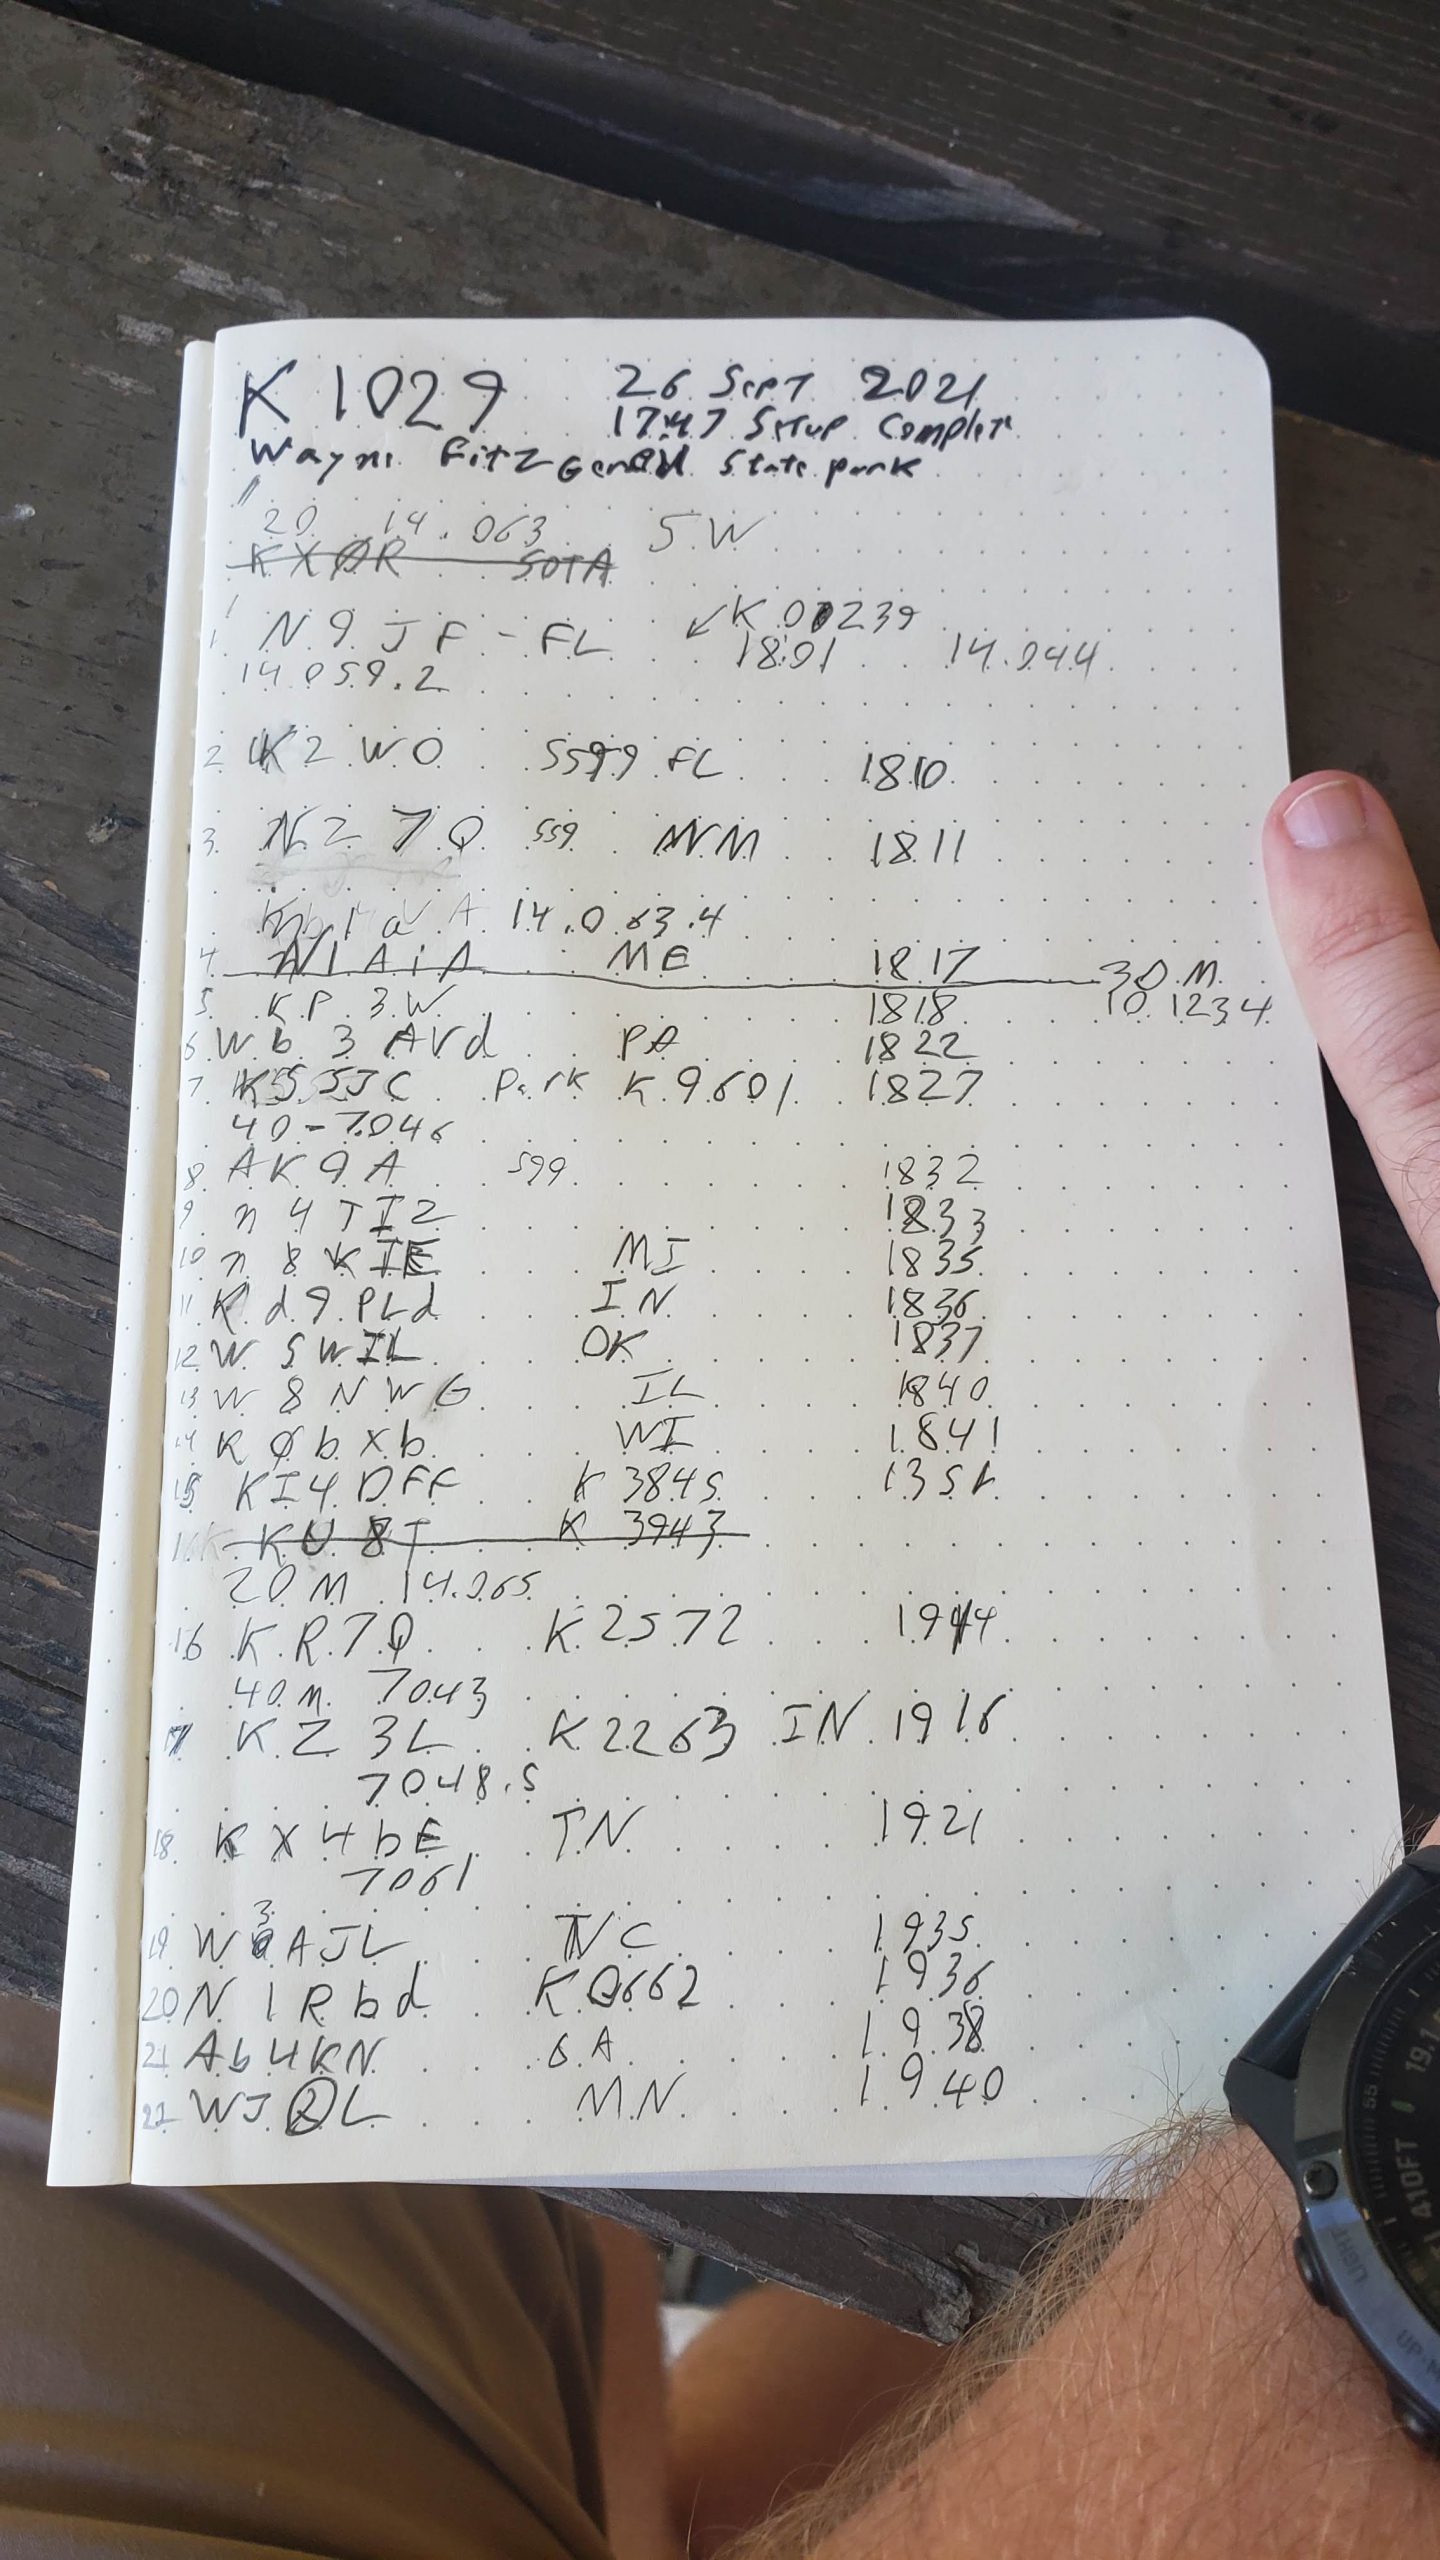 K 1029 26 Sept 2021
1747 Setup Complete
Wayne Fitzgerald State park
20 14.063 5W
KXØR SOTA
1. N9JF - FL ↙ K 00239
1801 14.044
14059.2
2. K2WO 5599 FL 1810
3. NZ7Q 559 NM 1811
14.063.4
4. N1AIA ME 1817 30M
5. KP3W 1818 10.1234
6. Wb3AVd PA 1822
7. K5SJC Park K9601 1827
40 - 7.046
8. AK9A 599 1832
9 n4TIZ 1833
10 n8KIE MI 1835
11 Kd9PLd IN 1836
12. W5WIL OK 1837
13 W8NWG IL 1840
14 KØbXb WI 1841
15 KI4DFF K3845 1351
KU8T K 3943
20M 14.065
16 KR7Q K2572 1914
40m 7043
17 KZ3L K2263 IN 1916
7048.5
18. KX4bE TN 1921
7061
19 W3AJL NC 1935
20 N1Rbd K0662 1936
21 Ab4KN GA 1938
22 WJ2L MN 1940
19.1
55
410FT
LIGHT